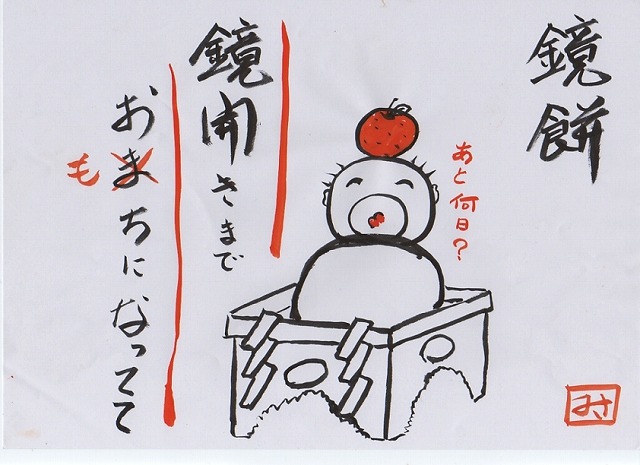 鏡餅
あと何日?
鏡開きまで
おまちになってて
も
みさ